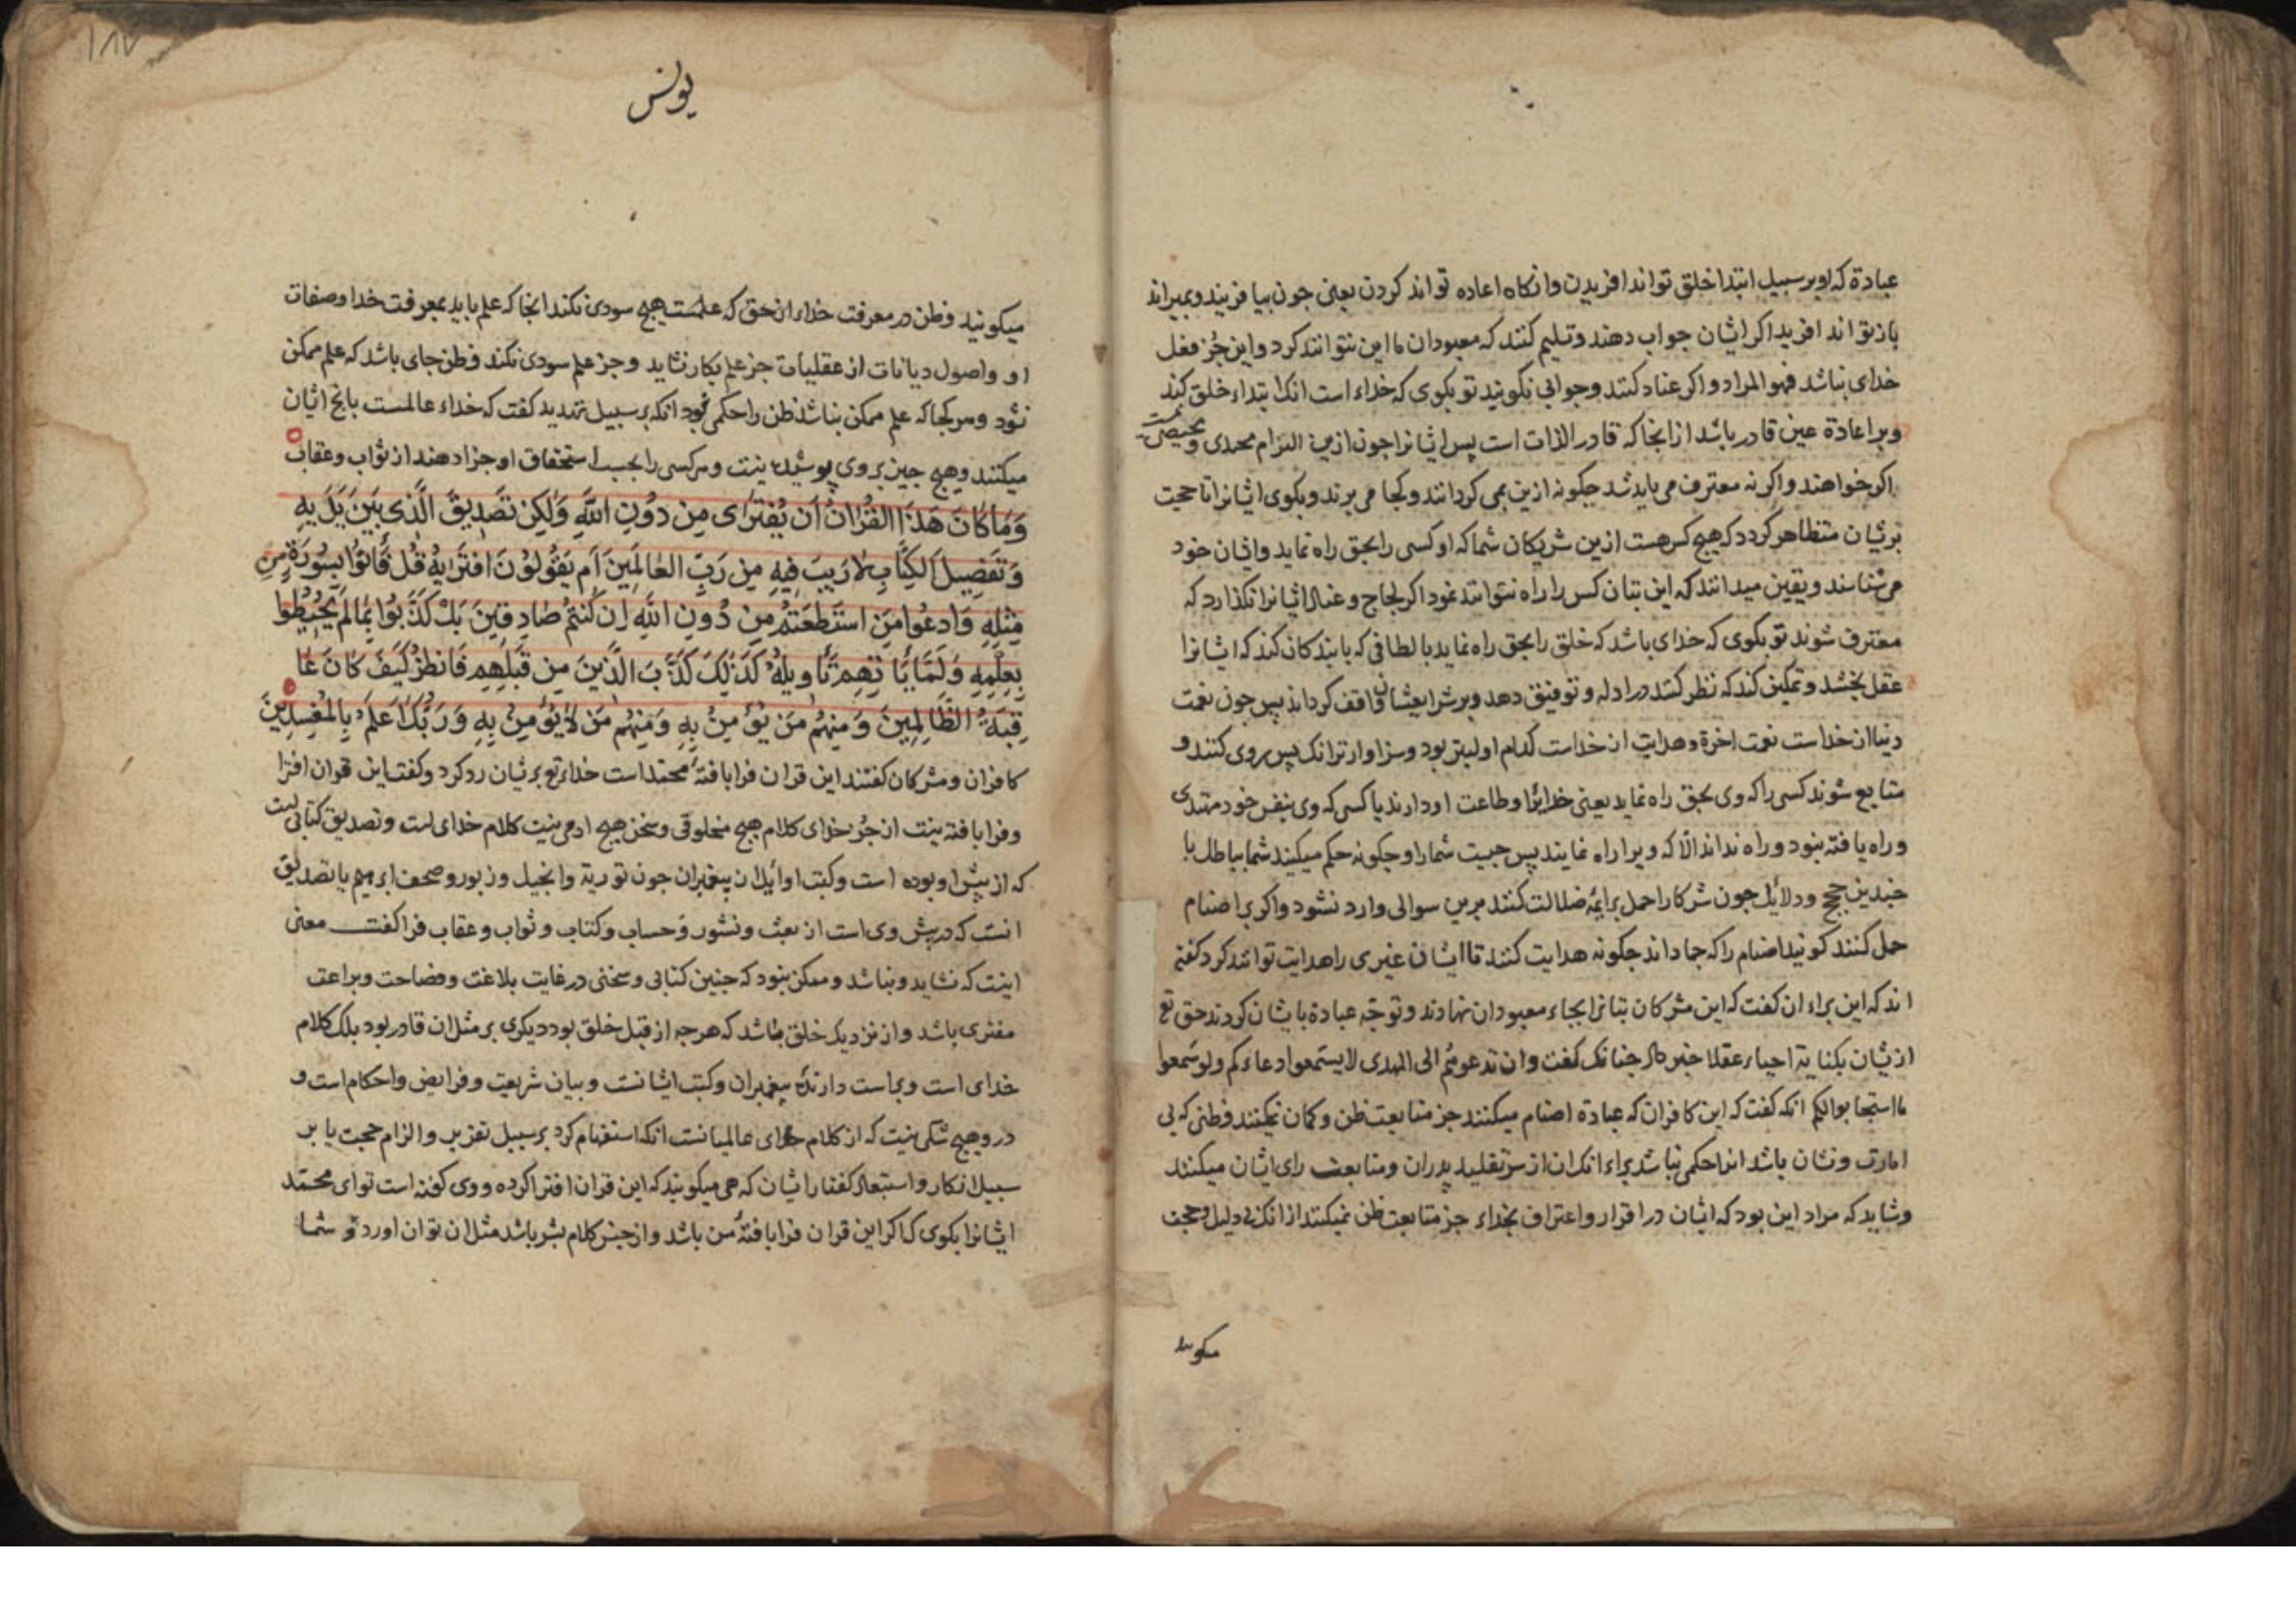 عبادة که او بر سبیل ابتدا خلق تواند افریدن وانکاه اعاده تواند کردن یعنی جون بیافریند وبمیراند
باز تواند افرید اکر ایشان جواب دهند وتسلیم کنند که معبودان ما این نتوانند کرد واین جُز فعل
خدای نباشد فهو المراد واکر عناد کنند وجوابی نکویند تو بکوی که خداء است انک ابتداء خلق کند
وبر اعادة عین قادر باشد از انجا که قادر الذات است پس ایشانرا جون ازین الزام محیدی و محیصی نیست
اکر خواهند واکر نه معترف می باید شد جکونه ازین می کردانند وکجا می برند وبکوی ایشانرا تا حجت
برشان متظاهر کردد که هیج کس هست ازین شریکان شما که او کسی را بحق راه نماید وایشان خود
می شناسند ویقین میدانند که این بتان کس را راه نتوانند نمود اکر لجاج وعناد ایشانرا نکذارد که
معترف شوند تو بکوی که خدای باشد که خلق را بحق راه نماید بالطافی که بایند کان کند که ایشانرا
عقل بخشد وتمکین کند که نظر کنند در ادله وتوفیق دهد وبر شرایعشان واقف کرداند پس جون نعمت
دنیا از خداست نعمت اخرة وهدایت از خداست کدام اولیتر بود وسزاوارتر انک پس روی کنند و
متابع شوند کسی را که وی بحق راه نماید یعنی خدایرا وطاعت او دارند یا کسی که وی بنفس خود مهتدی
وراه یافته نبود وراه نداند الّا که ویرا راه نمایند پس جیست شما را وجکونه حکم میکیند شما بباطل با
جندین حجج ودلایل جون شرکا را حمل بر ایمّه ضلالت کنند برین سوالی وارد نشود واکر بر اصنام
حمل کنند کویند اصنام را که جماد اند جکونه هدایت کنند تا ایشان غیری را هدایت توانند کرد کفته
اند که این براء ان کفت که این مشرکان بتانرا بجاء معبودان نهادند وتوجّه عبادة بایشان کردند حق تع
ازیشان بکنایة احیاء عقلا خبر داد جنانک کفت وان تدعوهم الی الهدی لا یسمعوا دعاءکم ولو سمعوا
ما استجابوا لکم انکه کفت که این کافران که عبادة اصنام میکنند جز متابعت ظن وکمان نمیکنند وظنی که بی
امارت ونشان باشد انرا حکمی نباشد براء انک ان از سر تقلید پدران ومتابعت رای ایشان میکنند
وشاید که مراد این بود که ایشان در اقرار واعتراف بخداء جز متابعت ظن نمیکنند از انک بی دلیل وحجت
میکویند
۱۸۷
یونس
میکویند وظن در معرفت خداء از حق که علمست هیج سودی نکند انجا که علم باید بمعرفت خدا وصفات
او واصول دیانات از عقلیات جز علم بکار نشاید وجز علم سودی نکند وظن جای باشد که علم ممکن
نشود وهر کجا که علم ممکن بباشد ظن را حکمی نبود انکه بر سبیل تهدید کفت که خداء عالمست بانج ایشان
میکنند وهیج جیز بر وی پوشیده نیست وهر کسی را بحسب استحقاق او جزا دهند از ثواب وعقاب
وَمَا كَانَ هَذَا الْقُرْانُ اَن يُفْتَرَى مِن دُوْنِ اللَّهِ وَلٰكِن تَصْدِيقَ الَّذِى بَيْنَ يَدَيْهِ
وَتَفْصِيلَ الْكِتَابِ لَا رَيْبَ فِيهِ مِن رَبِّ الْعَالَمِينَ اَم يَقُولُوْنَ افْتَرَايهُ قُل فَاتُوا بِسُورَةٍ مِن
مِثْلِهِ وَادعُوا مَنِ اسْتَطَعْتُم مِن دُونِ اللَّهِ اِن كُنْتُم صَادِقِينَ بَلْ كَذَّبُوا بِمَا لَم يُحِيطُوا
بِعِلْمِهِ وَلَمَّا يَا تِهِم تَأويلُهُ كَذٰلِكَ كَذَّبَ الَّذِينَ مِن قَبْلِهِم فَانظُر كَيْفَ كَانَ عَا
قِبَةُ الظَّالِمِينَ وَمِنْهُم مَن يُؤْمِنُ بِهِ وَمِنْهُم مَن لَا يُؤْمِنُ بِهِ وَرَبُّكَ اَعلَمُ بِالْمُفْسِدِينَ
کافران ومشرکان کفتند این قران فرابافتهٔ محمّد است خداء تع برشان رد کرد وکفت این قران افترا
وفرابافته نیست از جُز خدای کلام هیج مخلوقی وسخن هیج ادمی نیست کلام خدای است وتصدیق کتابی است
که از پیش او بوده است وکتب اوایل از پیغمبران جون توریة وانجیل وزبور وصحف ابرهیم یا تصدیق
انست که در پیش وی است از بعث ونشور وحساب وکتاب وثواب وعقاب فرا کفت معنی
اینست که نشاید ونباشد وممکن نبود که جنین کتابی وسخنی در غایت بلاغت وفصاحت وبراعت
مفتری باشد واز نزدیک خلق باشد که هرجه از قبل خلق بود دیکری بر مثل ان قادر بود بلک کلام
خدای است وبراست دارندهٔ پیغمبران وکتب ایشانست وبیان شریعت وفرایض واحکام است و
درو هیج شکی نیست که از کلام خدای عالمیانست انکه استفهام کرد بر سبیل تقریر والزام حجت یا بر
سبیل انکار واستبعاد کفتار ایشان که می میکویند که این قران افترا کرده ووی کفته است تو ای محمّد
ایشانرا بکوی که اکر این قران فرابافتهٔ من باشد واز جنس کلام بشر باشد مثل ان توان اورد تو شما